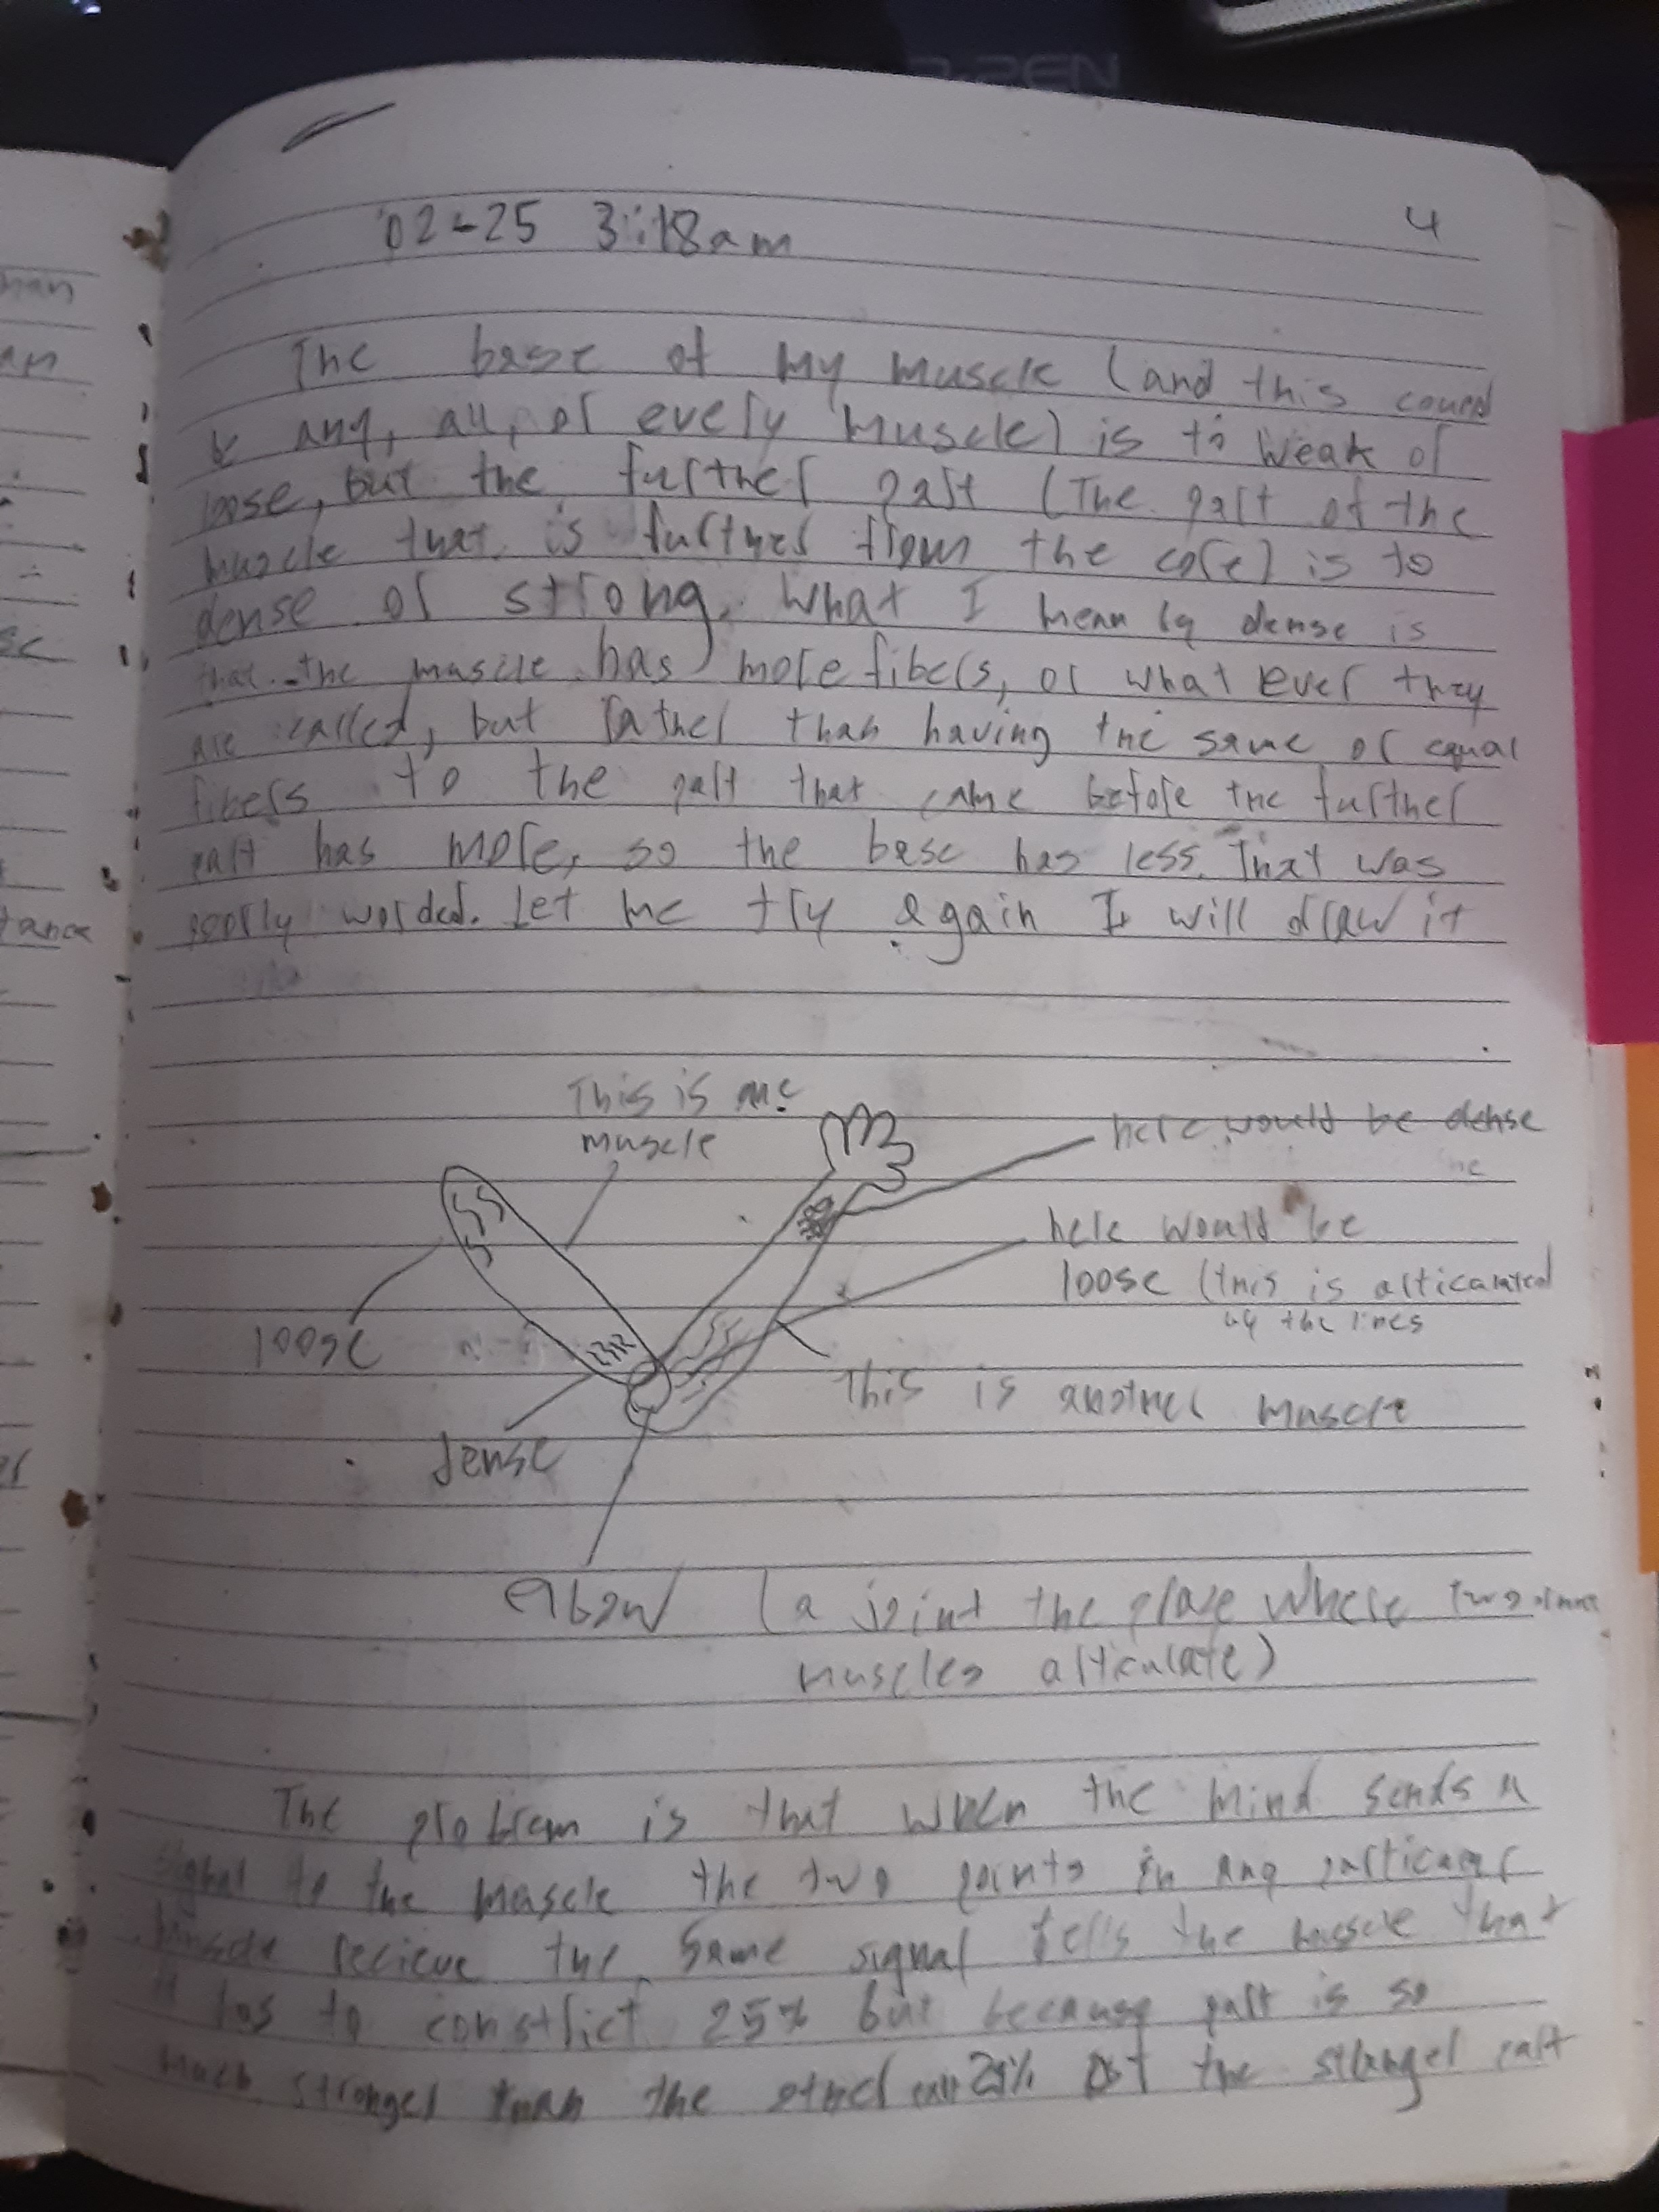 02-25 3:18am
4
The base of my muscle (and this could
be any, all, or every muscle) is to weak or
loose, but the further part (The part of the
muscle that is further from the core) is to
dense or strong. What I mean by dense is
that the muscle has more fibers, or what ever they
are called, but rather than having the same or equal
fibers to the part that came before the further
part has more, so the base has less. That was
poorly worded. Let me try again I will draw it
This is one
muscle
here would be dense
here would be
loose (this is articulated
by the lines
loose
This is another muscle
dense
elbow (a joint the place where two or more
muscles articulate)
The problem is that when the mind sends a
signal to the muscle the two points in any particular
muscle recieve the same signal tells the muscle that
it has to constrict 25% but because part is so
much stronger than the other part 25% of the stronger part
han
am
sc
tance